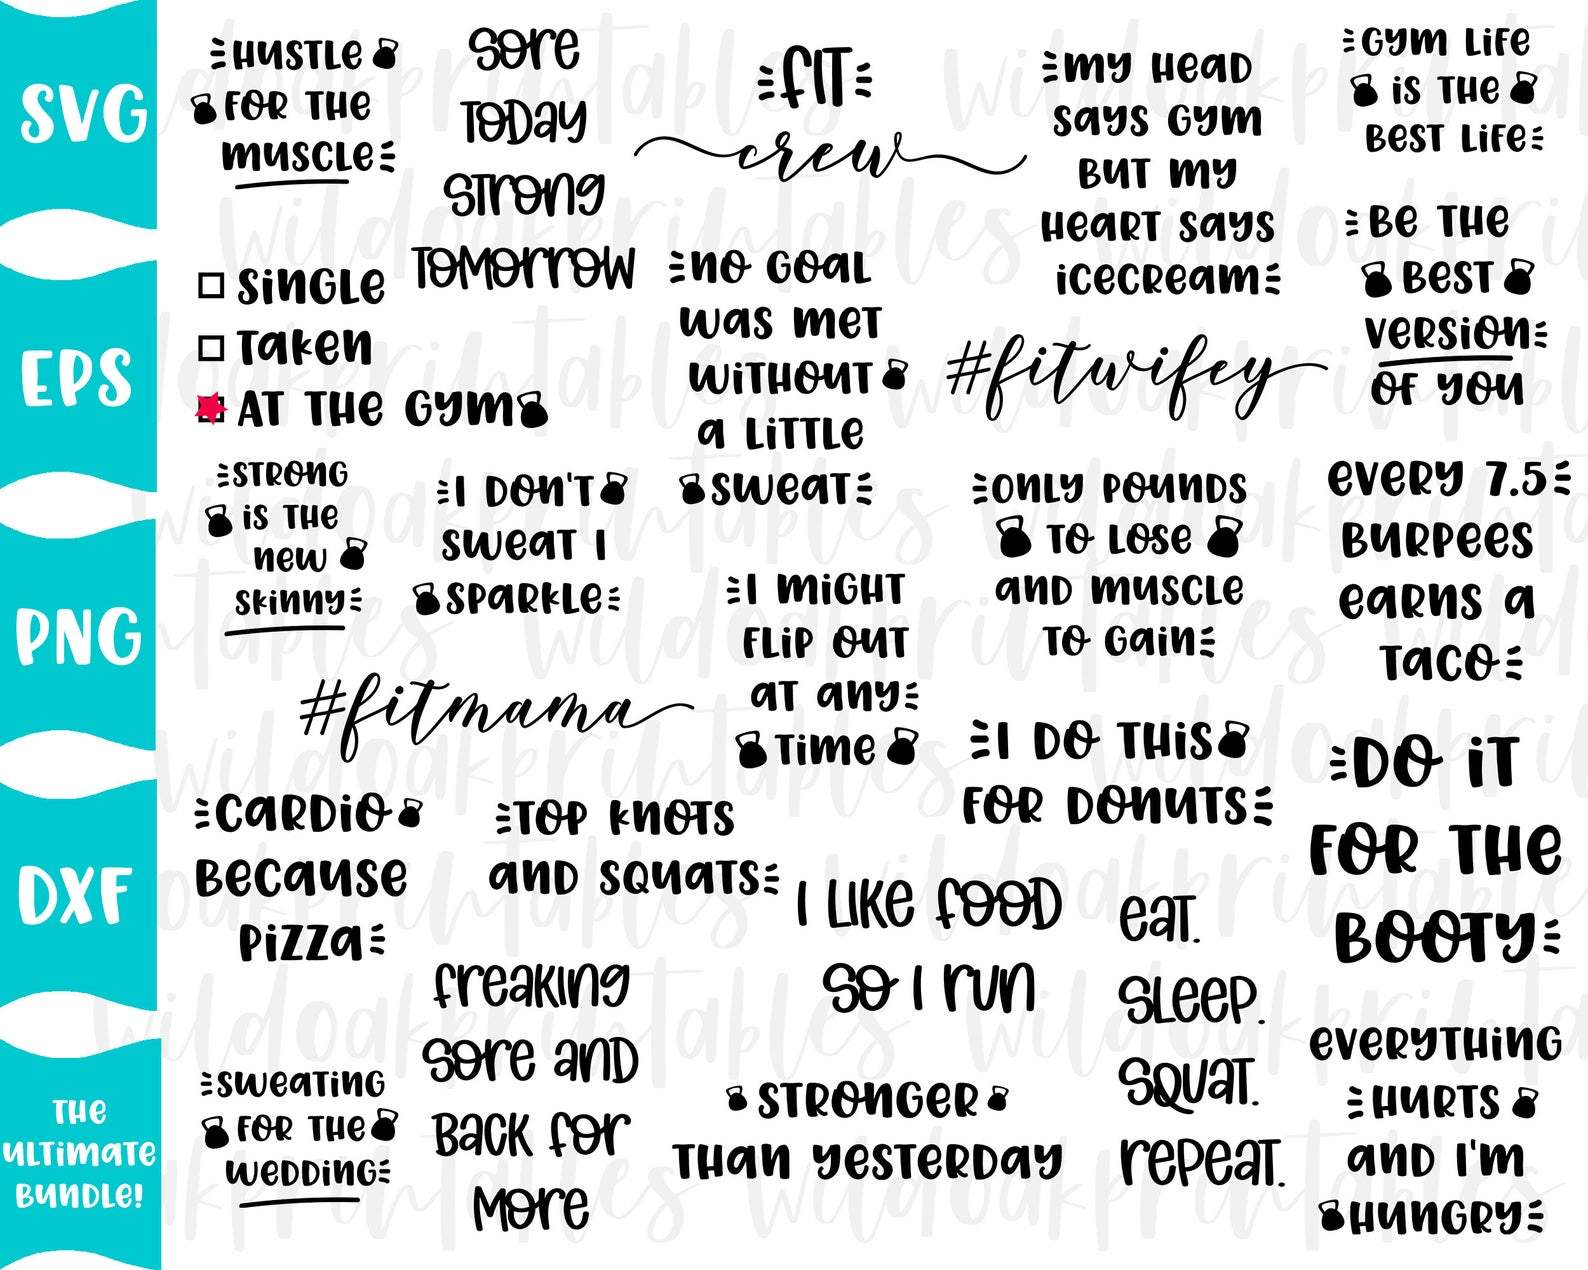 SVG
EPS
PNG
DXF
THE
ULTIMATE
BUNDLE!
HUSTLE
FOR THE
MUSCLE
SORE
TODAY
STRONG
TOMORROW
FIT
crew
MY HEAD
SAYS GYM
BUT MY
HEART SAYS
ICECREAM
GYM LIFE
IS THE
BEST LIFE
SINGLE
TAKEN
AT THE GYM
NO GOAL
WAS MET
WITHOUT
A LITTLE
SWEAT
#fitwifey
BE THE
BEST
VERSION
OF YOU
STRONG
IS THE
NEW
SKINNY
I DON'T
SWEAT I
SPARKLE
ONLY POUNDS
TO LOSE
AND MUSCLE
TO GAIN
EVERY 7.5
BURPEES
EARNS A
TACO
#fitmama
I MIGHT
FLIP OUT
AT ANY
TIME
I DO THIS
FOR DONUTS
DO IT
FOR THE
BOOTY
CARDIO
BECAUSE
PIZZA
TOP KNOTS
AND SQUATS
I LIKE FOOD
SO I RUN
EAT.
SLEEP.
SQUAT.
REPEAT.
FREAKING
SORE AND
BACK FOR
MORE
SWEATING
FOR THE
WEDDING
STRONGER
THAN YESTERDAY
EVERYTHING
HURTS
AND I'M
HUNGRY
wildoakprintables